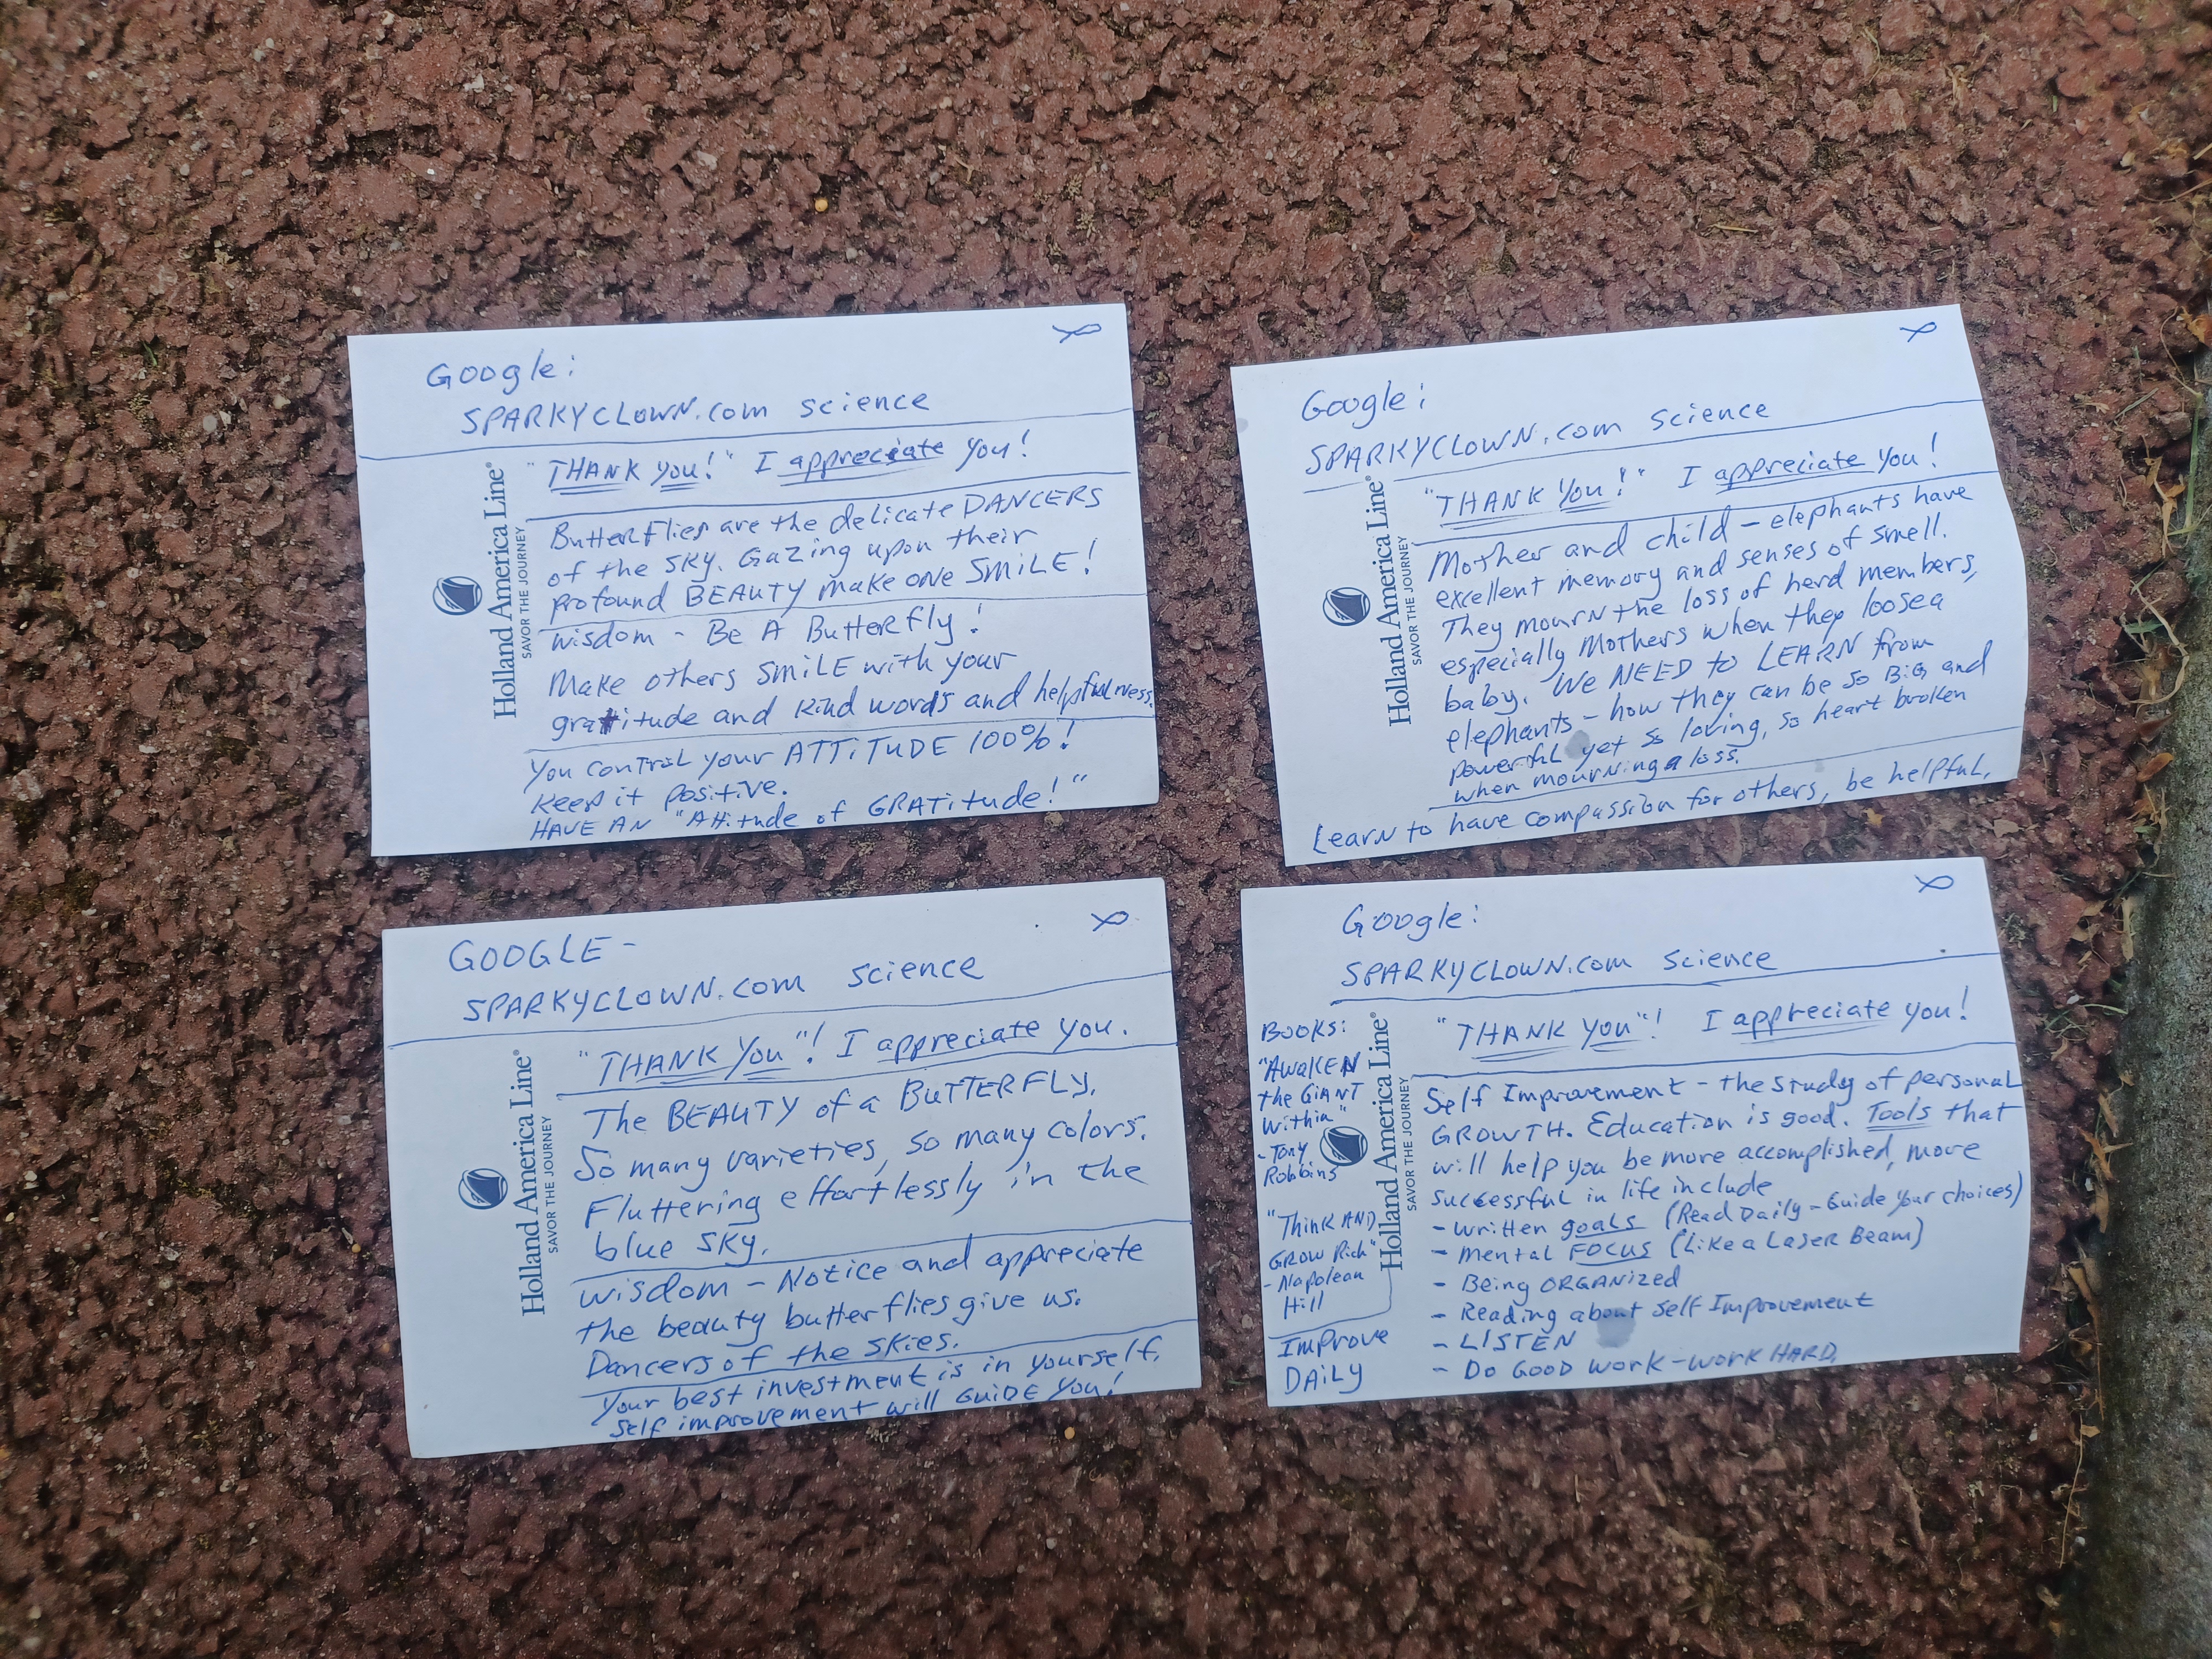 Google:
SPARKYCLOWN.com science
"THANK YOU!" I appreciate you!
Holland America Line®
SAVOR THE JOURNEY
Butterflies are the delicate DANCERS
of the SKY. Gazing upon their
profound BEAUTY make one SMiLE!
wisdom - Be A Butterfly!
Make others SMiLE with your
gratitude and kind words and helpfulness.
You control your ATTiTUDE 100%!
Keep it positive.
HAVE AN "Attitude of GRATitude!"
Google:
SPARKYCLOWN.com science
"THANK YOU!" I appreciate you!
Holland America Line®
SAVOR THE JOURNEY
Mother and child - elephants have
excellent memory and senses of smell.
They mourn the loss of herd members,
especially Mothers when they loose a
baby. We NEED to LEARN from
elephants - how they can be so BiG and
powerful yet so loving, so heart broken
when mourning a loss.
Learn to have compassion for others, be helpful.
GOOGLE -
SPARKYCLOWN.com science
"THANK YOU"! I appreciate you.
Holland America Line®
SAVOR THE JOURNEY
The BEAUTY of a BUTTERFLY.
So many varieties, so many colors.
Fluttering effortlessly in the
blue sky.
wisdom - Notice and appreciate
the beauty butterflies give us.
Dancers of the skies.
Your best investment is in yourself.
Self improvement will GUiDE You!
Google:
SPARKYCLOWN.com science
"THANK YOU"! I appreciate you!
Books:
"AWAKEN
the GiANT
within"
- Tony
Robbins
"Think AND
GROW Rich"
- Napolean
Hill
Improve
DAiLY
Holland America Line®
SAVOR THE JOURNEY
Self Improvement - the study of personal
GROWTH. Education is good. Tools that
will help you be more accomplished, more
successful in life include
- written goals (Read Daily - Guide your choices)
- mental FOCUS (Like a Laser Beam)
- Being ORGANiZED
- Reading about Self Improvement
- LISTEN
- Do GOOD work - work HARD.